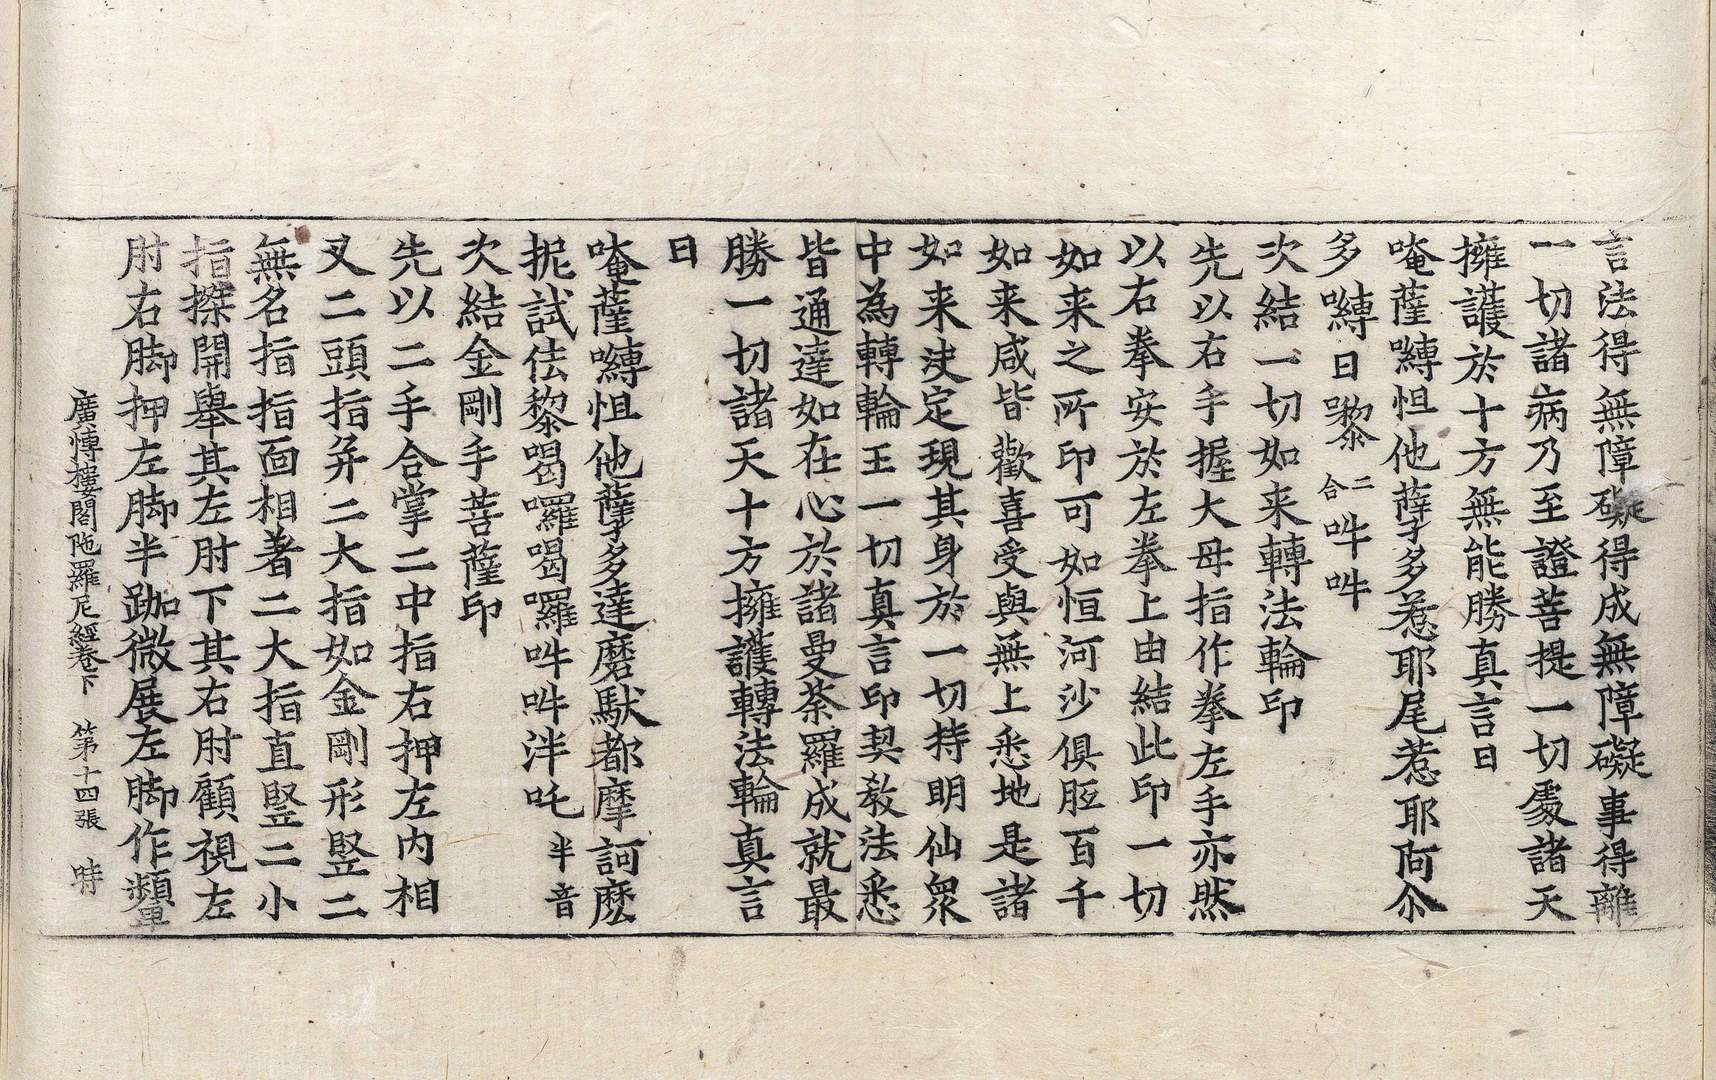 言法得無障礙得成無障礙事得離
一切諸病乃至證菩提一切處諸天
擁護於十方無能勝真言曰
唵薩嚩怛他蘖多惹耶尾惹耶阿尒
多嚩日𠼝二合吽吽
次結一切如来轉法輪印
先以右手握大母指作拳左手亦然
以右拳安於左拳上由結此印一切
如来之所印可如恒河沙俱胝百千
如来咸皆歡喜受與無上悉地是諸
如来决定現其身於一切持明仙衆
中為轉輪王一切真言印契教法悉
皆通達如在心於諸曼荼羅成就最
勝一切諸天十方擁護轉法輪真言
曰
唵薩嚩怛他蘖多達磨馱都摩訶麽
抳試佉黎曷囉曷囉吽吽泮吒半音
次結金剛手菩薩印
先以二手合掌二中指右押左内相
叉二頭指并二大指如金剛形竪二
無名指指面相著二大指直竪二小
指搩開舉其左肘下其右肘顧視左
肘右脚押左脚半跏微展左脚作顰
廣博樓閣陁羅尼經卷下　第十四張　時